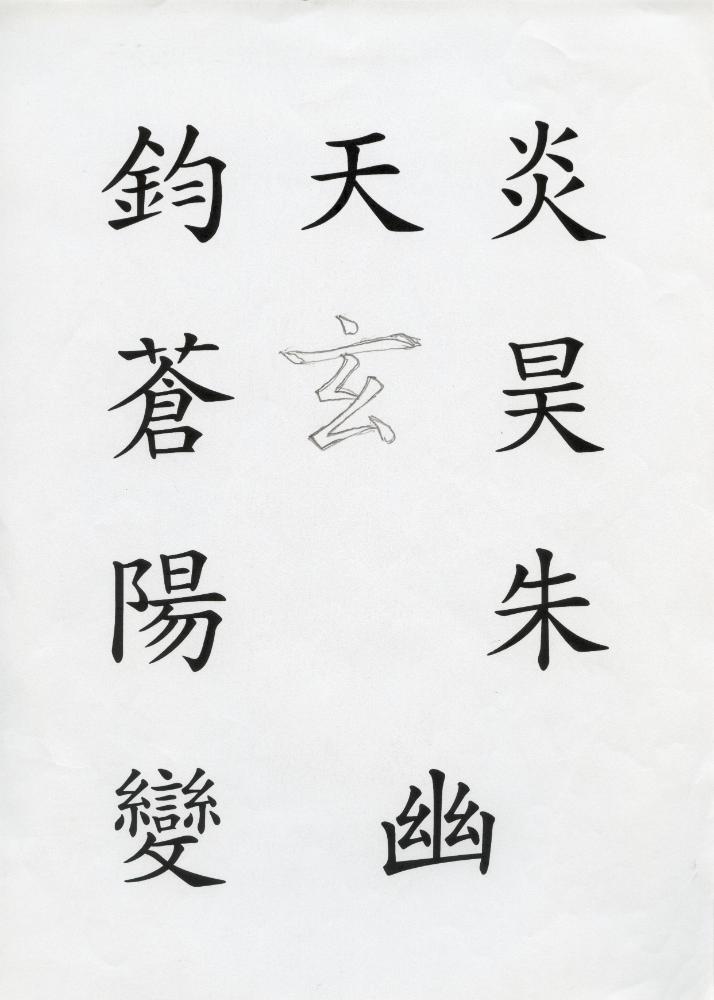 鈞天炎
蒼玄昊
陽朱
變幽